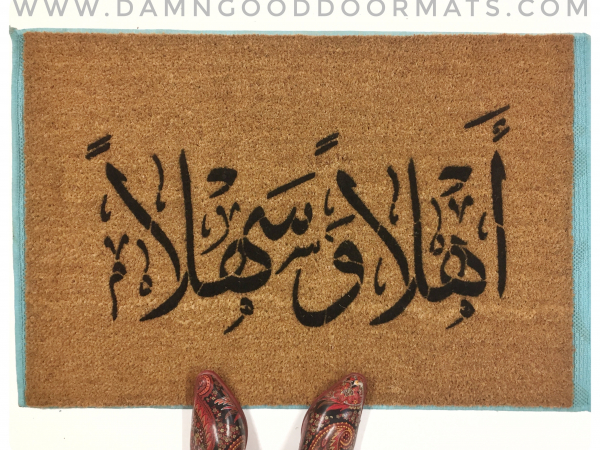 WWW.DAMNGOODDOORMATS.COM
أَهْلاً وَسَهْلاً